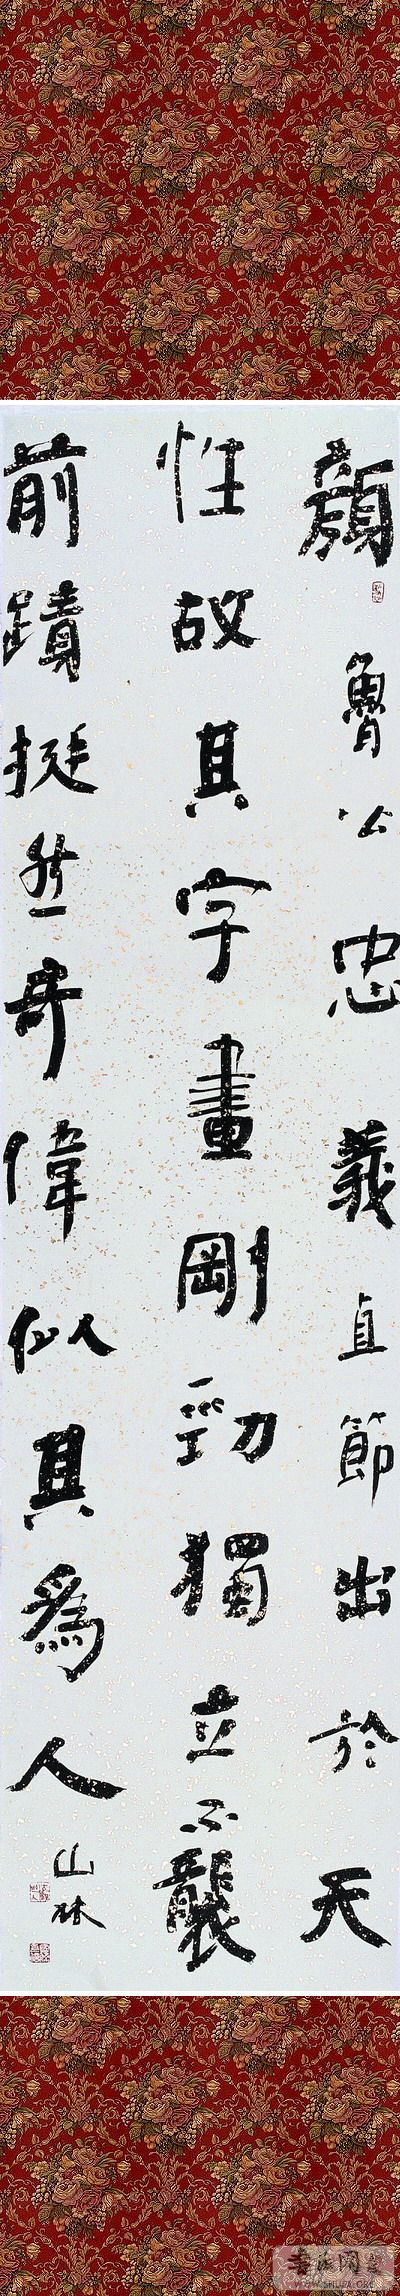 顔魯公忠義直節出於天
性故其字畫剛勁獨立不襲
前蹟挺然奇偉似其為人
山林
书法网
WWW.SHUFA.ORG